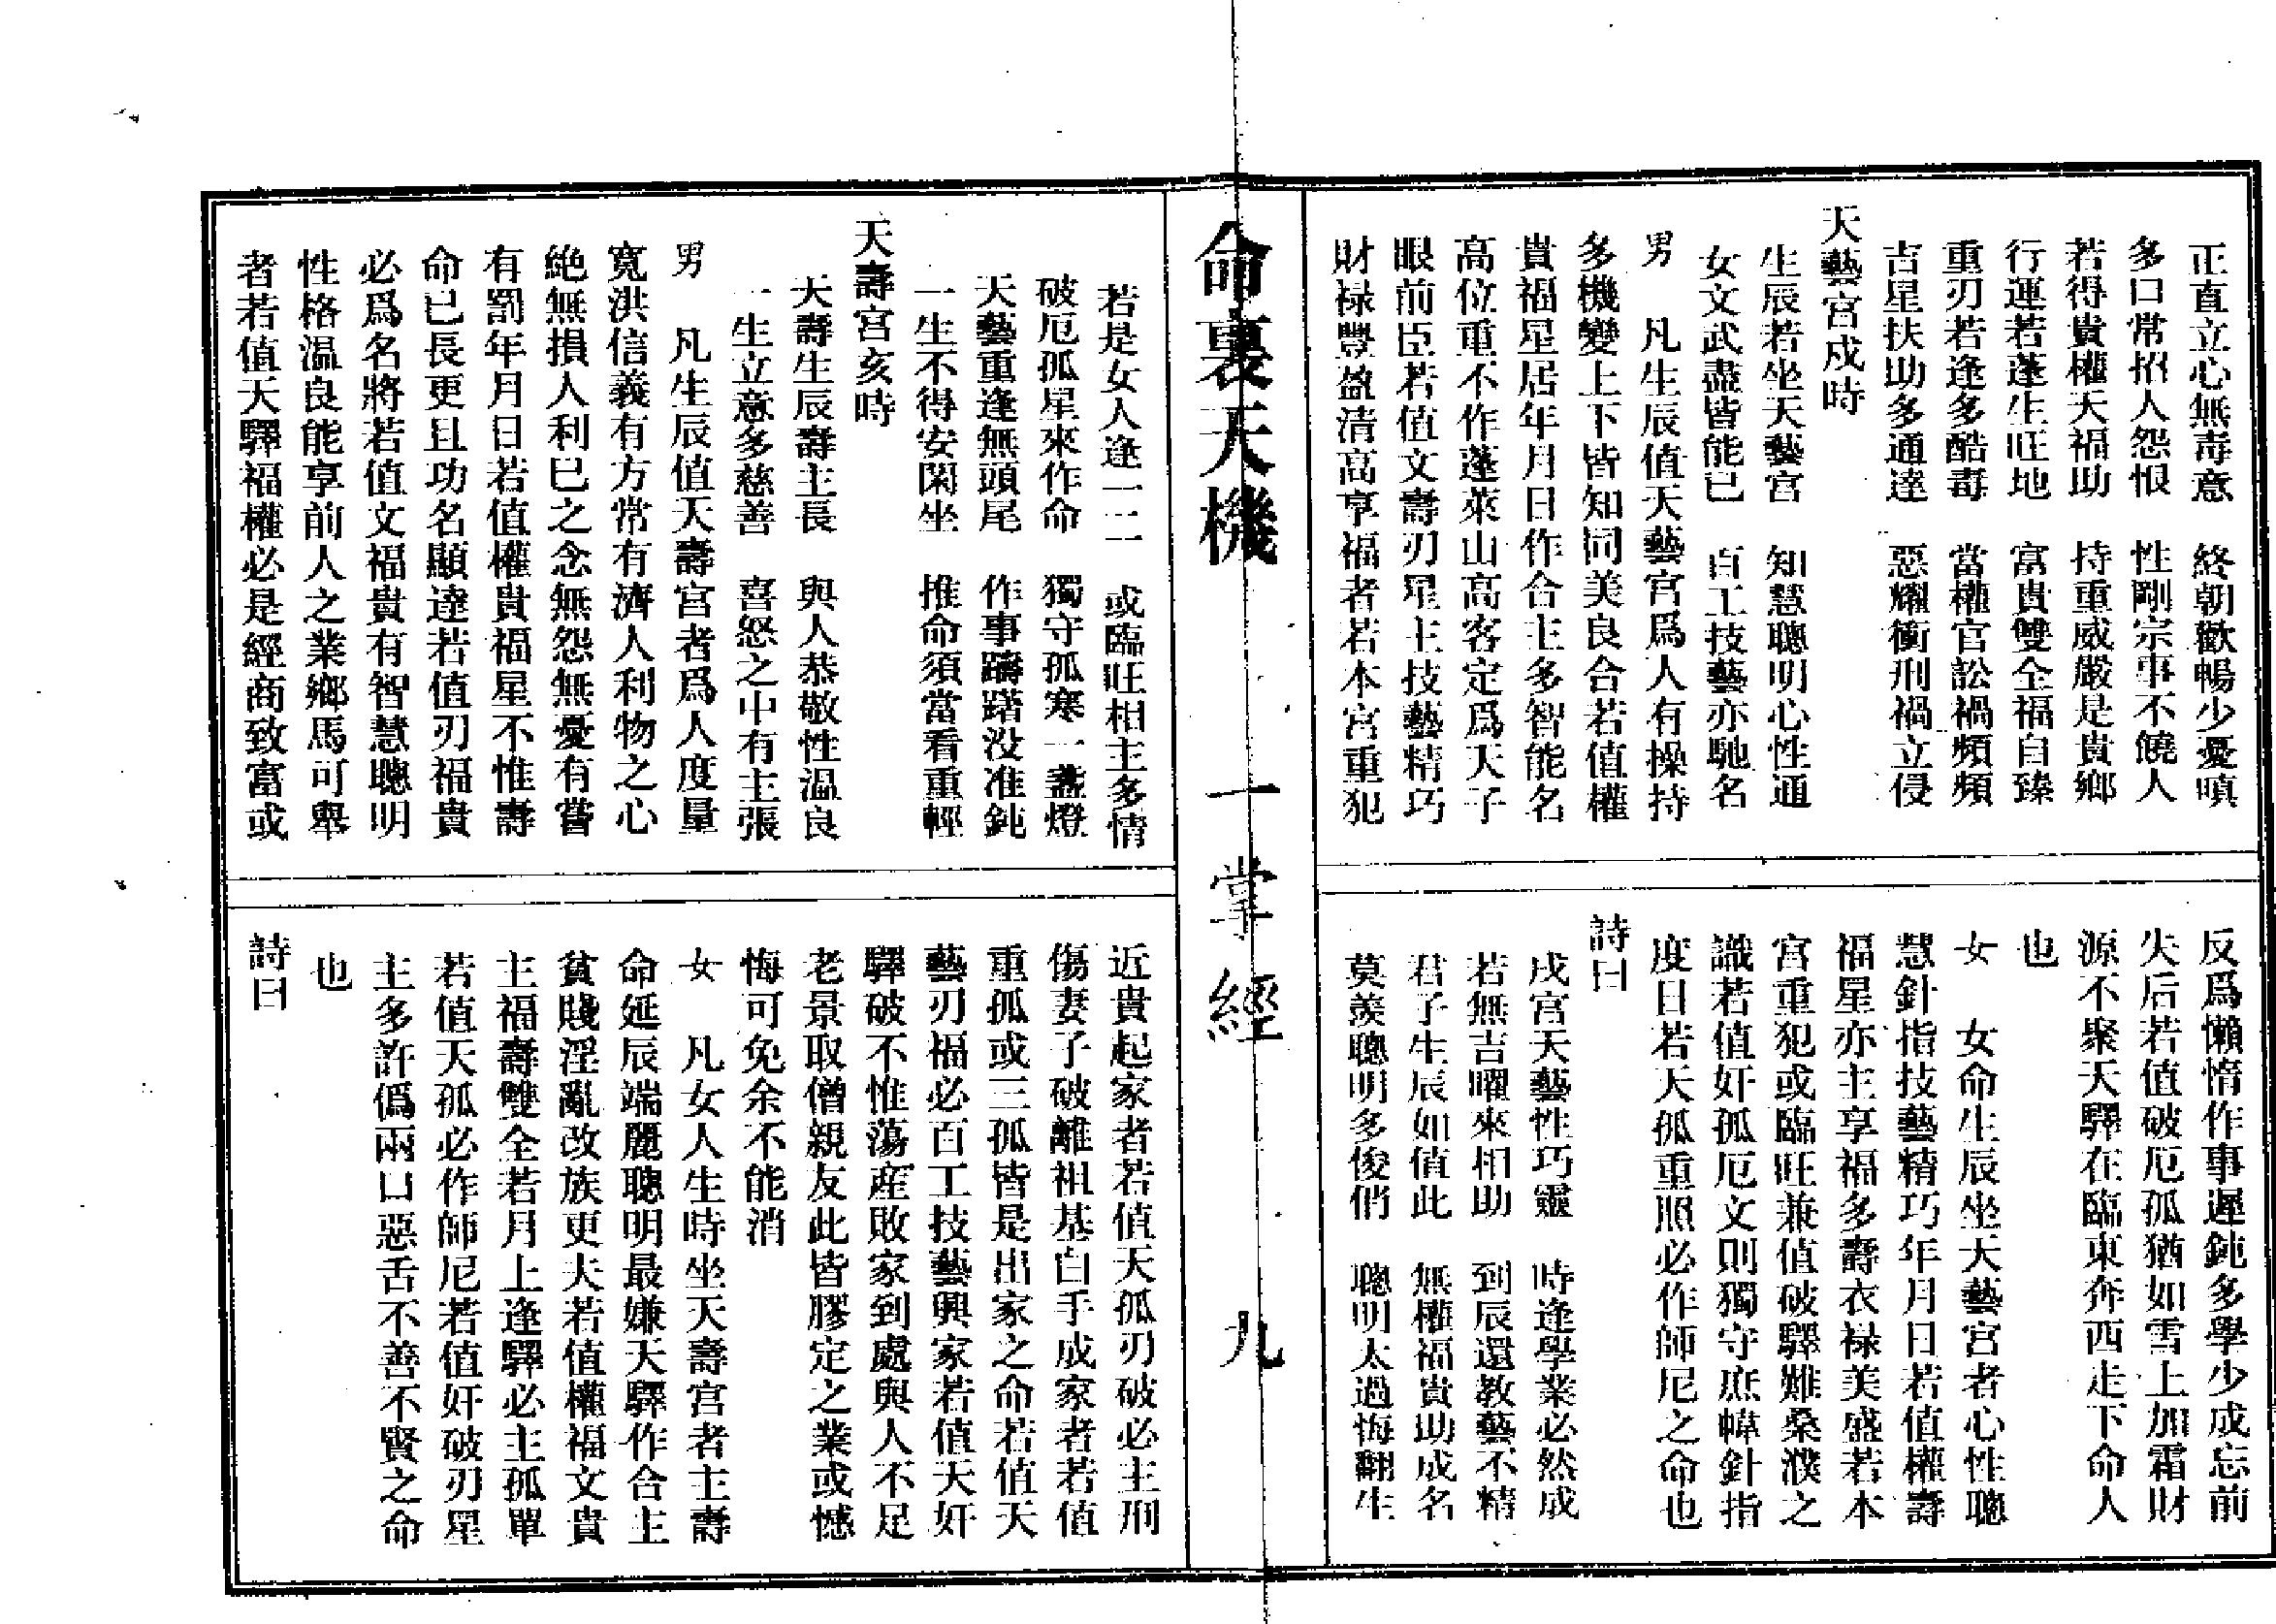 正直立心無毒意　終朝歡暢少憂嗔
多口常招人怨恨　性剛宗事不饒人
若得貴權天福助　持重威嚴是貴鄉
行運若蓬生旺地　富貴雙全福自臻
重刃若逢多酷毒　當權官訟禍頻頻
吉星扶助多通達　惡耀衝刑禍立侵
天藝宮戍時
生辰若坐天藝宮　知慧聰明心性通
女文武盡皆能已　百工技藝亦馳名
男　凡生辰值天藝宮爲人有操持
多機變上下皆知同美良合若值權
貴福星居年月日作合主多智能名
高位重不作蓬萊山高客定爲天子
眼前臣若值文壽刃星主技藝精巧
財祿豐盈清高亨福者若本宮重犯
反爲懶惰作事遲鈍多學少成忘前
失后若值破厄孤猶如雪上加霜財
源不聚天驛在臨東奔西走下命人
也
女　女命生辰坐天藝宮者心性聰
慧針指技藝精巧年月日若值權壽
福星亦主享福多壽衣祿美盛若本
宮重犯或臨旺兼值破驛難桑濮之
識若值奸孤厄文則獨守庶幃針指
度日若天孤重照必作師尼之命也
詩曰
戌宮天藝性巧靈　時逢學業必然成
若無吉曜來相助　到辰還教藝不精
君子生辰如值此　無權福貴助成名
莫羨聰明多俊俏　聰明太過悔翻生
命裏天機　一掌經　九
若是女人逢一二　或臨旺相主多情
破厄孤星來作命　獨守孤寒一盞燈
天藝重逢無頭尾　作事躊躇没准鈍
一生不得安閑坐　推命須當看重輕
天壽宮亥時
天壽生辰壽主長　與人恭敬性溫良
一生立意多慈善　喜怒之中有主張
男　凡生辰值天壽宮者爲人度量
寬洪信義有方常有濟人利物之心
絶無損人利已之念無怨無憂有嘗
有罰年月日若值權貴福星不惟壽
命已長更且功名顯達若值刃福貴
必爲名將若值文福貴有智慧聰明
性格溫良能享前人之業鄉馬可舉
者若值天驛福權必是經商致富或
近貴起家者若值天孤刃破必主刑
傷妻子破離祖基白手成家者若值
重孤或三孤皆是出家之命若值天
藝刃福必百工技藝興家若值天奸
驛破不惟蕩産敗家到處與人不足
老景取僧親友此皆膠定之業或憾
悔可免余不能消
女　凡女人生時坐天壽宮者主壽
命延辰端麗聰明最嫌天驛作合主
貧賤淫亂改族更夫若值權福文貴
主福壽雙全若月上逢驛必主孤單
若值天孤必作師尼若值奸破刃星
主多許僞兩口惡舌不善不賢之命
也
詩曰